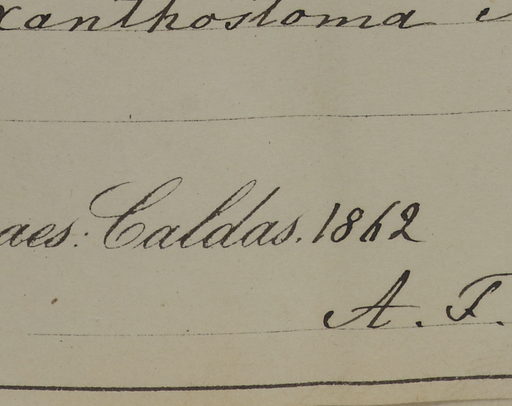 xanthostoma
aes: Caldas. 1862
A. F.